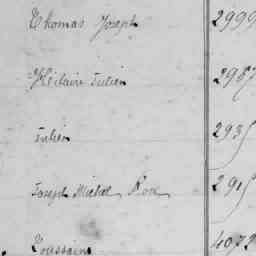 Thomas Joseph 2999
Hilaire Julien 2987
Julien 2935
Joseph Michel 2915
Toussaint 4072